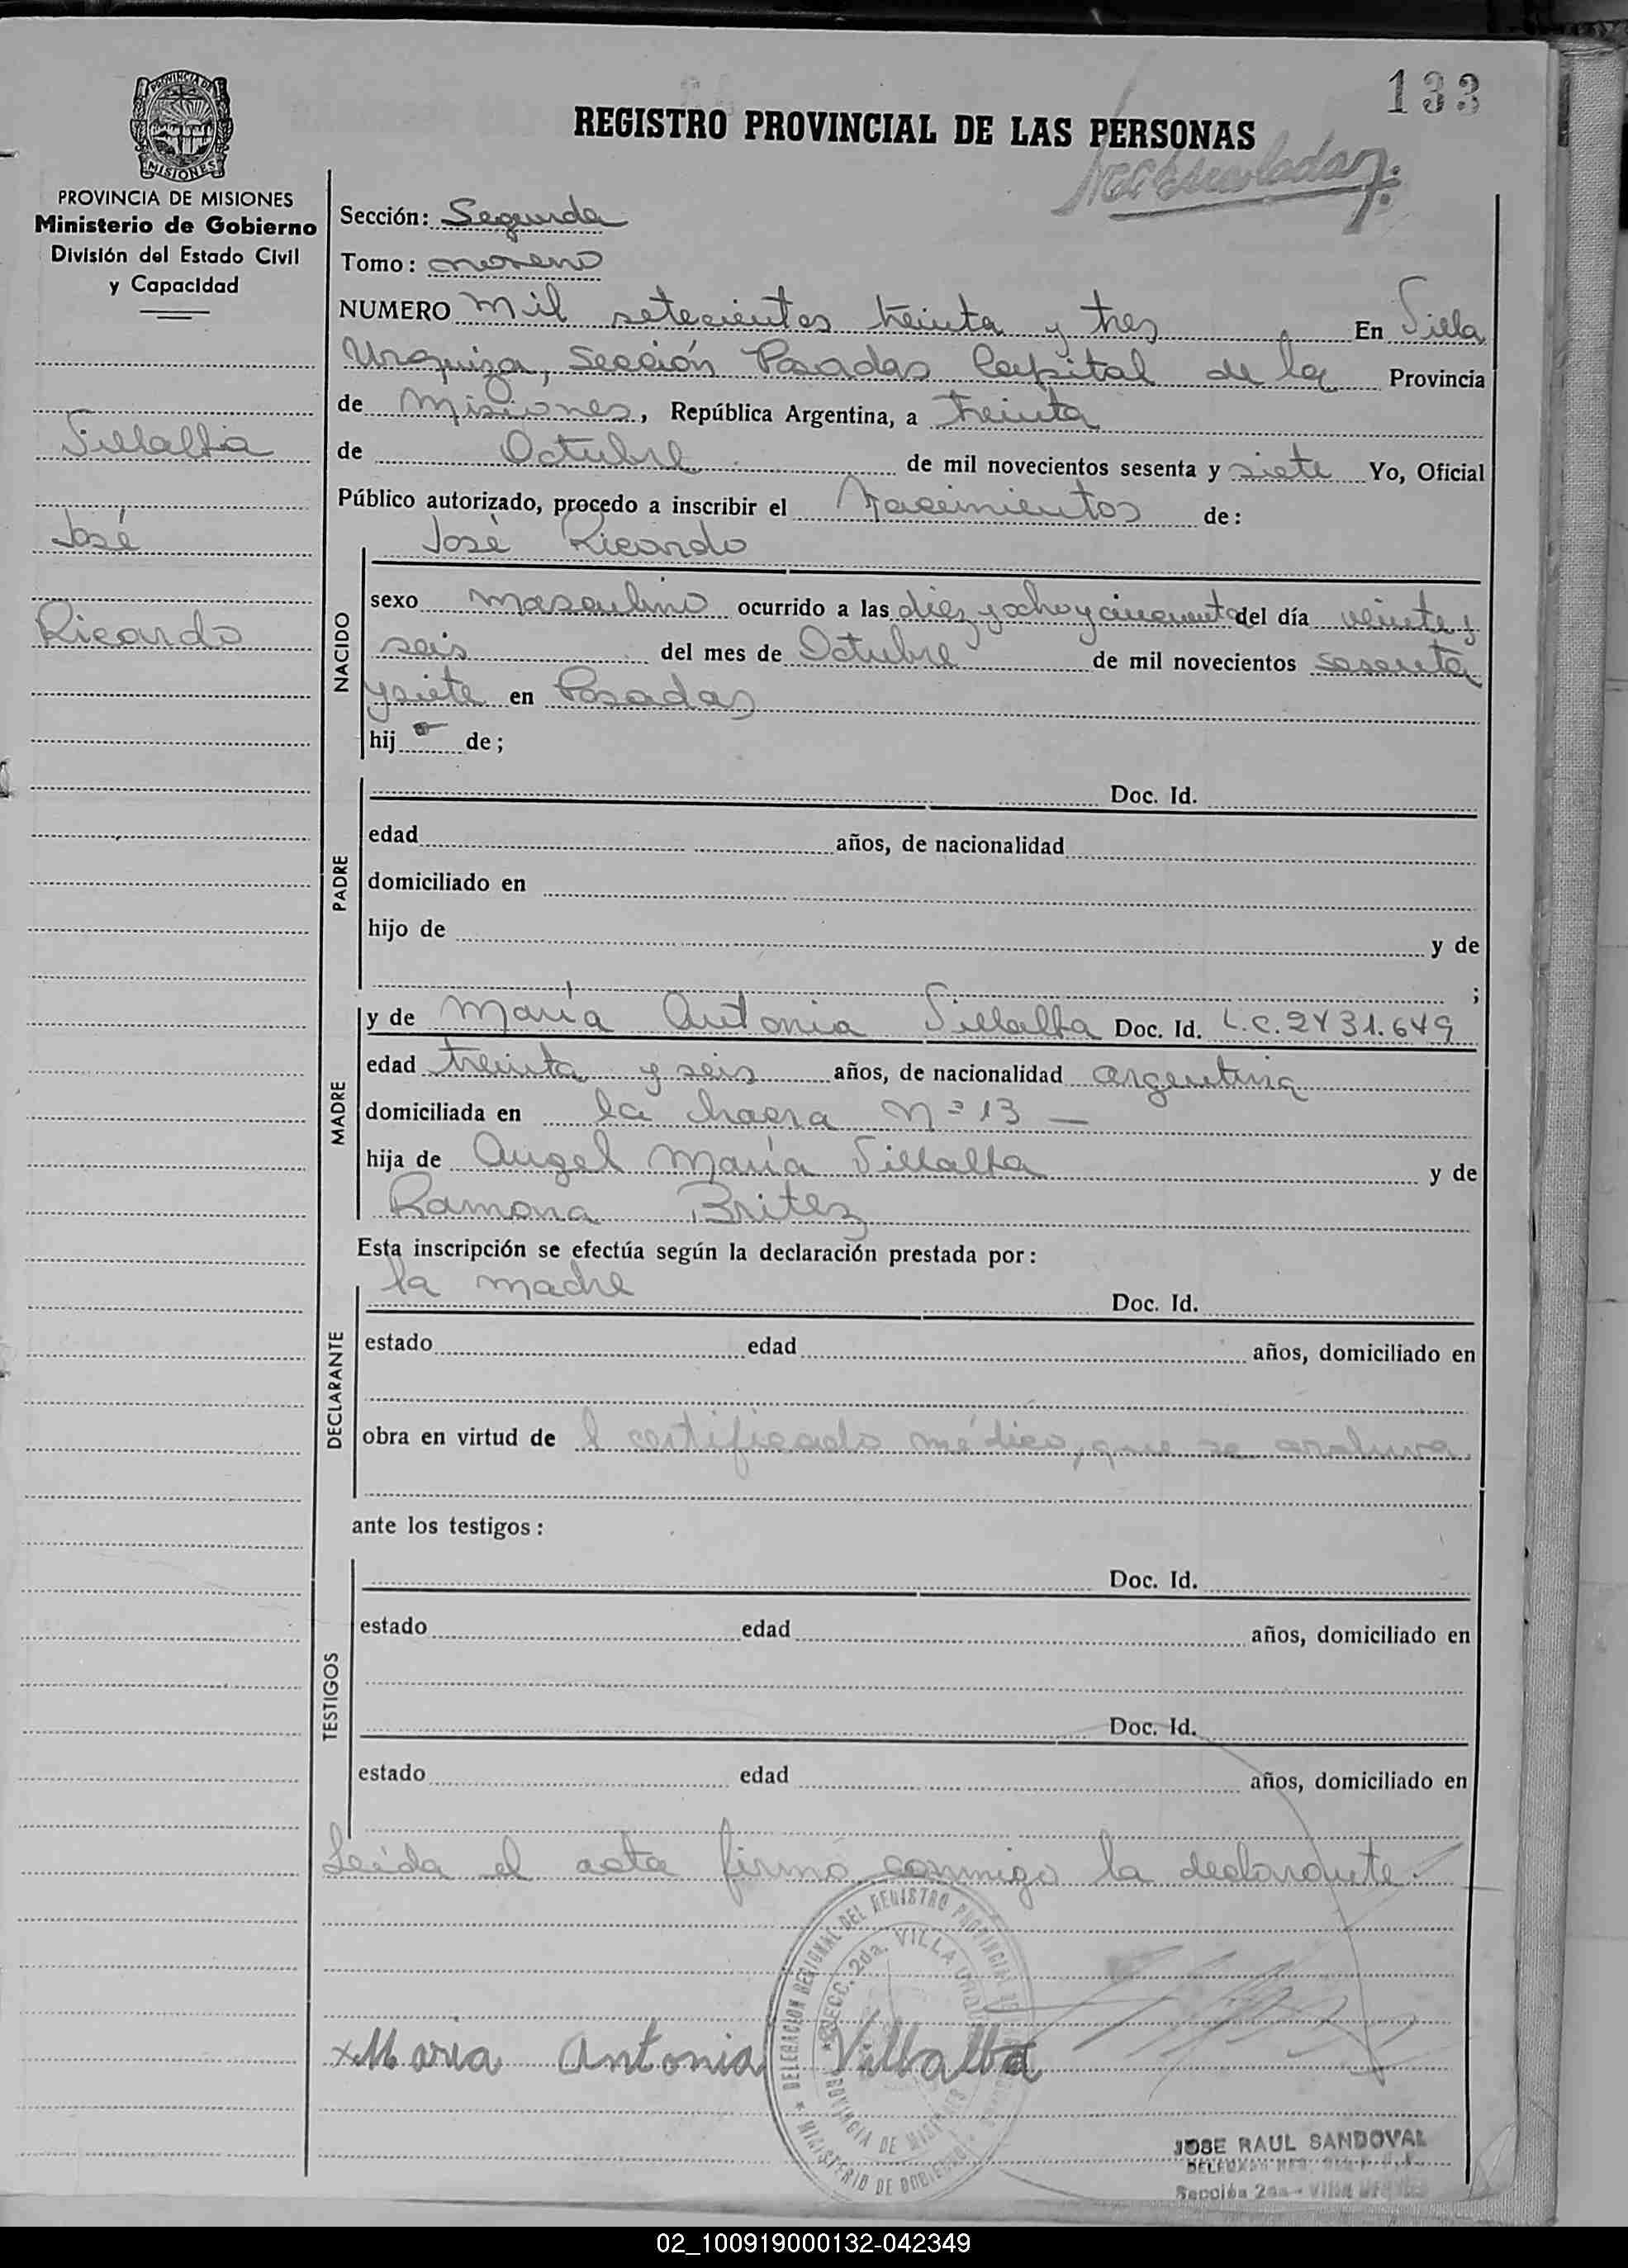 133
REGISTRO PROVINCIAL DE LAS PERSONAS
PROVINCIA DE MISIONES
PROVINCIA DE MISIONES
Ministerio de Gobierno
División del Estado Civil
y Capacidad
Villalba
José
Ricardo
Sección: Segunda
Tomo: noveno
NUMERO mil setecientos treinta y tres En Villa
Urquiza, Sección Posadas Capital de la Provincia
de Misiones, República Argentina, a treinta
de Octubre de mil novecientos sesenta y siete Yo, Oficial
Público autorizado, procedo a inscribir el Nacimientos de:
José Ricardo
NACIDO
sexo masculino ocurrido a las diez y ocho y cincuenta del día veinte y
seis del mes de Octubre de mil novecientos sesenta
y siete en Posadas
hij o de;
PADRE
Doc. Id.
edad años, de nacionalidad
domiciliado en
hijo de y de
;
MADRE
y de María Antonia Villalba Doc. Id. L.C. 2431.649
edad treinta y seis años, de nacionalidad argentina
domiciliada en la chacra Nº 13 —
hija de Angel María Villalba y de
Ramona Britez
Esta inscripción se efectúa según la declaración prestada por:
DECLARANTE
la madre Doc. Id.
estado edad años, domiciliado en
obra en virtud de l certificado médico, que se archiva
ante los testigos:
TESTIGOS
Doc. Id.
estado edad años, domiciliado en
Doc. Id.
estado edad años, domiciliado en
Leída el acta firmó conmigo la declarante.
DELEGACION REGIONAL DEL REGISTRO PROVINCIAL
SECC. 2da. VILLA
PROVINCIA DE MISIONES
MINISTERIO DE GOBIERNO
x Maria Antonia Villalba
JOSE RAUL SANDOVAL
Sección 2da - VILLA
02_100919000132-042349